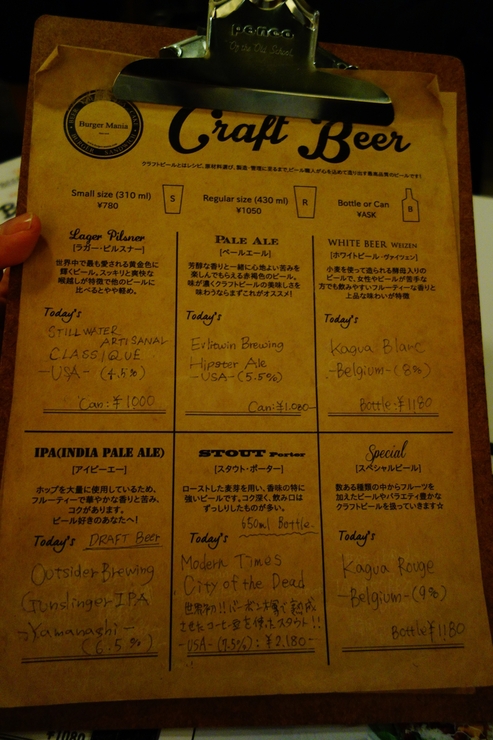 penco
Burger Mania
Craft Beer
クラフトビールとはレシピ、原材料選び、製造・管理に至るまで、ビール職人が心を込めて造り出す高高品質のビールです!
Small size (310 ml)
¥780
S
Regular size (430 ml)
¥1050
R
Bottle or Can
¥ASK
B
Lager Pilsner
[ラガー・ピルスナー]
世界中で最も愛される黄金色に
輝くビール。スッキリと爽快な
喉越しが特徴で他のビールに
比べるとやや軽め。
Today's
STILLWATER
ARTISANAL
CLASSIQUE
-USA- (4.5%)
Can: ¥1000
PALE ALE
[ペールエール]
芳醇な香りと一緒に心地よい苦みを
楽しんでもらえる赤褐色のビール。
味が濃くクラフトビールの美味しさを
味わうならまずこれがオススメ!
Today's
Eviltwin Brewing
Hipster Ale
-USA-(5.5%)
Can:¥1.080-
WHITE BEER WEIZEN
[ホワイトビール・ヴァイツェン]
小麦を使って造られる酵母入りの
ビールで、女性やビールが苦手な
方でも飲みやすいフルーティーな香りと
上品な味わいが特徴
Today's
Kagua Blanc
-Belgium-(8%)
Bottle:¥1180
IPA(INDIA PALE ALE)
[アイピーエー]
ホップを大量に使用しているため、
フルーティーで華やかな香りと苦み、
コクがあります。
ビール好きのあなたへ!
Today's DRAFT BEER
Outsider Brewing
Gunslinger IPA
-Yamanashi-
(6.5%)
STOUT Porter
[スタウト・ポーター]
ローストした麦芽を用い、香味の特に
強いビールです。コク深く、飲み口は
ずっしりしたものが多い。
650ml Bottle.
Today's
Modern Times
City of the Dead
世界初!!バーボン木樽で熟成
させたコーヒー豆を使ったスタウト!!
-USA-(7.5%):¥2,180-
Special
[スペシャルビール]
数ある種類の中からフルーツを
加えたビールやバラエティ豊かな
クラフトビールを扱っていきます☆
Today's
Kagua Rouge
-Belgium-(9%)
Bottle¥1180